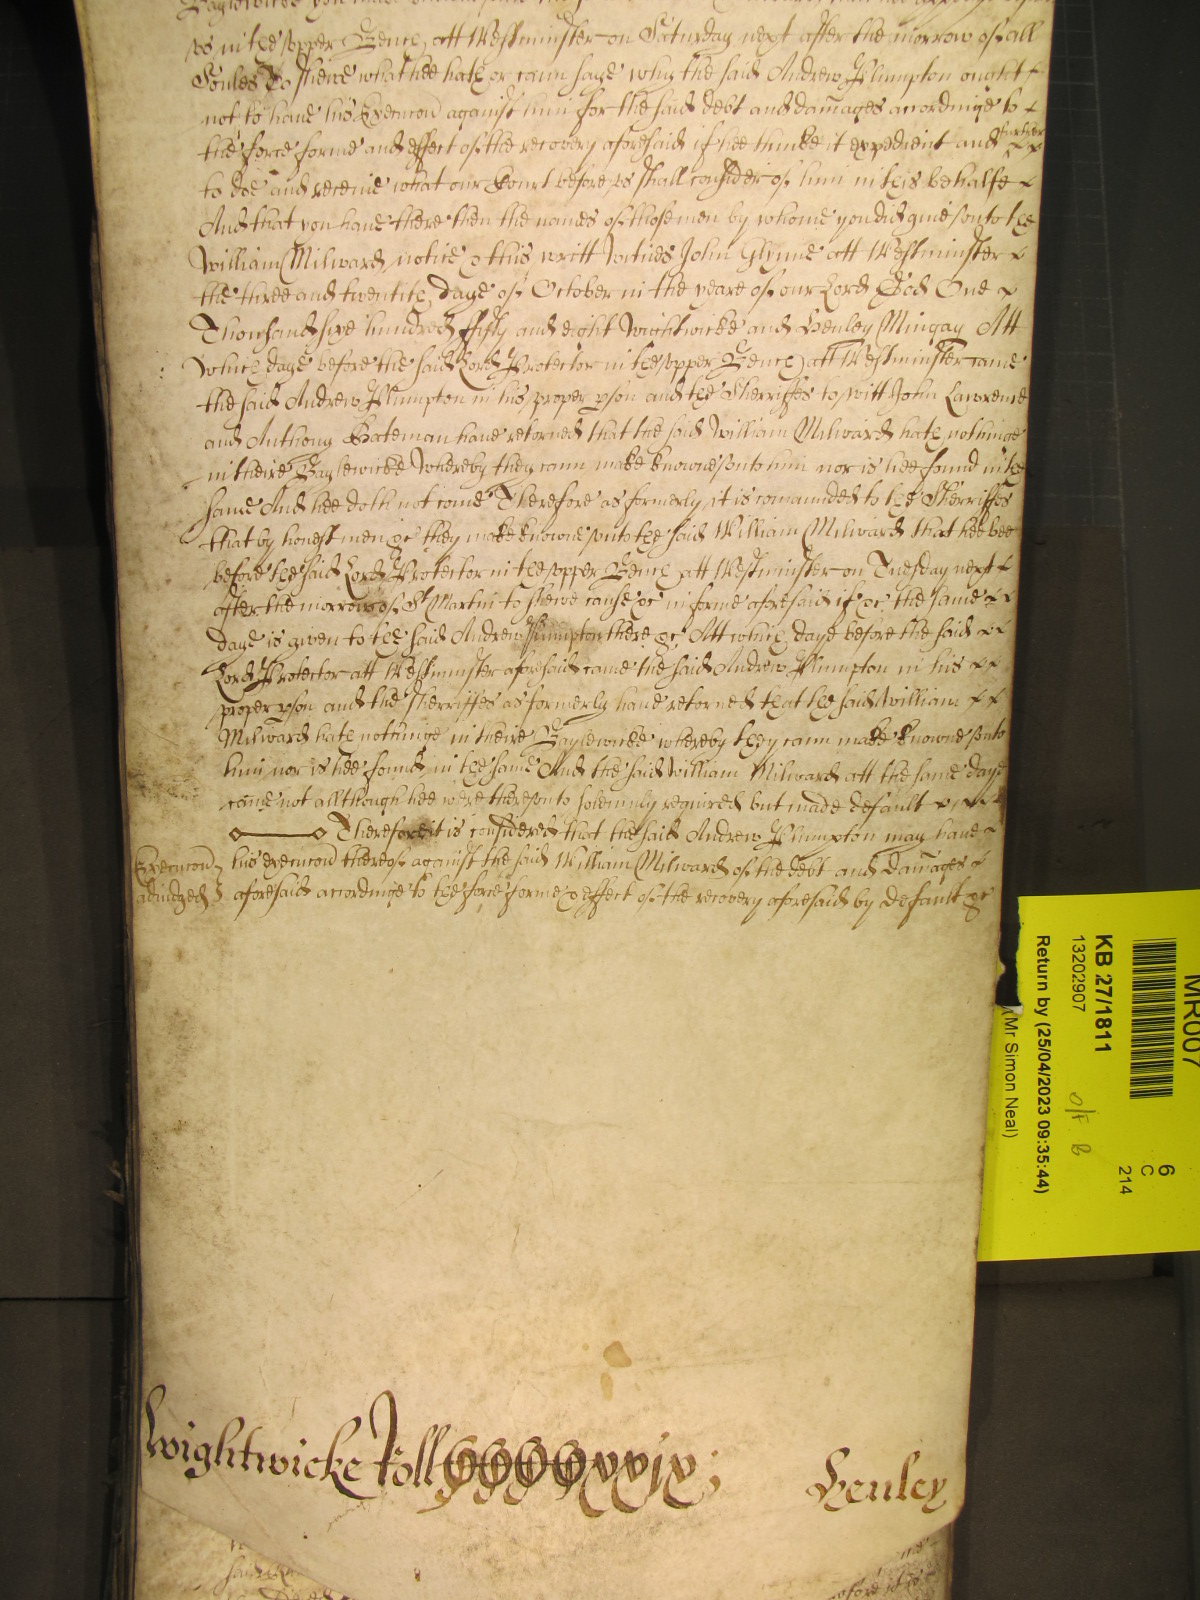 us in the upper Bench att Westminster on Saturday next after the morrow of all
Soules To shewe what hee hath or cann saye why the said Andrew Plumpton ought
not to have his Execucon against him for the said debt and damages accordinge to
the force forme and effect of the recovery aforesaid if hee thinke it expedient and further
to doe and receive what our Court before us shall consider of him in this behalfe
And that you have there then the names of those men by whome you did give unto the
William Milward notice & this writt Wittnes John Glynne att Westminster
the three and twentith daye of October in the yeare of our Lord God One
Thousand sixe hundred fifty and eight Wightwicke and Henley Mingay Att
which daye before the said Lord Protector in the upper Bench att Westminster came
the said Andrew Plumpton in his proper pson and the Sherriffes to witt John Lawrence
and Anthony Bateman have retorned that the said William Milward hath nothinge
in theire Baylewicke Whereby they cann make knowne unto him nor is hee found in the
same And hee doth not come Therefore as formerly it is comaunded to the Sherriffes
that by honest men &c they make knowne unto the said William Milward that hee bee
before the said Lord Protector in the upper Bench att Westminster on Tuesday next
after the morrow of St Martin to shewe cause &c in forme aforesaid if &c the same
daye is given to the said Andrew Plumpton there &c Att which daye before the said
Lord Protector att Westminster aforesaid came the said Andrew Plumpton in his
proper pson and the Sherriffes as formerly have retorned that the said William
Milward hath nothinge in theire Baylewicke whereby they cann make knowne unto
him nor is hee found in the same And the said William Milward att the same daye
came not allthough hee were thereunto solemnly required but made default
Therefore it is considered that the said Andrew Plumpton may have
Execucon his execucon thereof against the said William Milward of the debt and damages
adiudged aforesaid accordinge to the force forme & effect of the recovery aforesaid by default &c
Wightwicke Roll CCCCxxix
Henley
MR007
6
C
214
KB 27/1811
13202907
O/F B
Return by (25/04/2023 09:35:44)
(Mr Simon Neal)